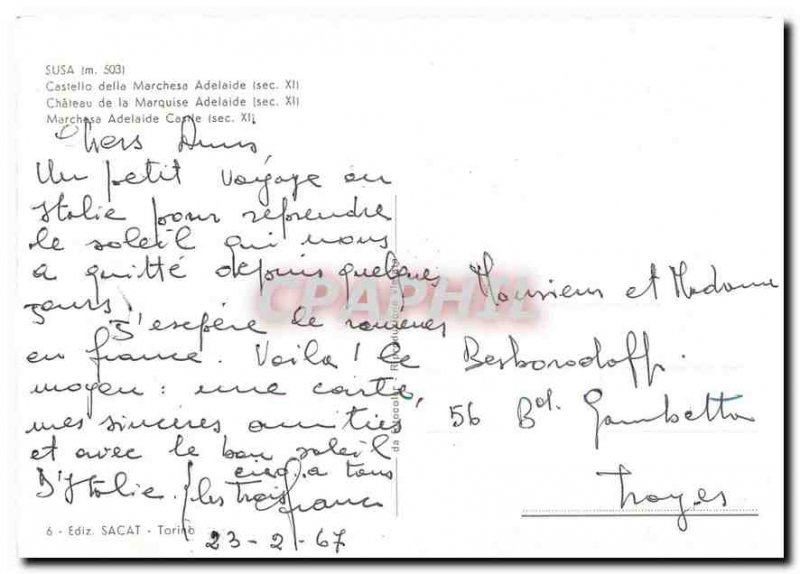 SUSA (m. 503)
Castello della Marchesa Adelaide (sec. XI)
Château de la Marquise Adelaide (sec. XI)
Marchesa Adelaide Castle (sec. XI)
Chers Amis,
Un petit voyage en
Italie pour reprendre
le soleil qui nous
a quitté depuis quelques
jours. J'espère le ramener
en france. Voila! le
moyen: une carte,
mes sincères amitiés
et avec le bon soleil
D'Italie. ciao a tous
les trois
6 - Ediz. SACAT - Torino
23-2-67
CPAPHIL
Monsieur et Madame
Besborodoff.
56 Bd. Gambetta
Troyes